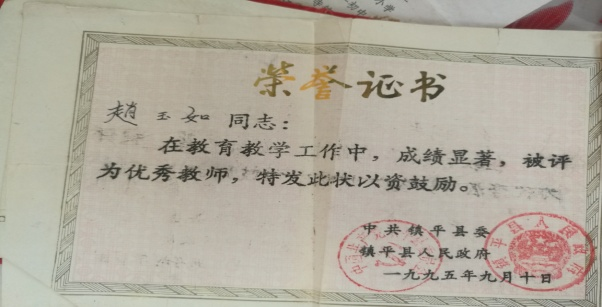 荣誉证书
趙玉如 同志：
在教育教学工作中，成绩显著，被评
为优秀教师，特发此状以资鼓励。
中共镇平县委
镇平县人民政府
一九九五年九月十日
镇平县人民政府